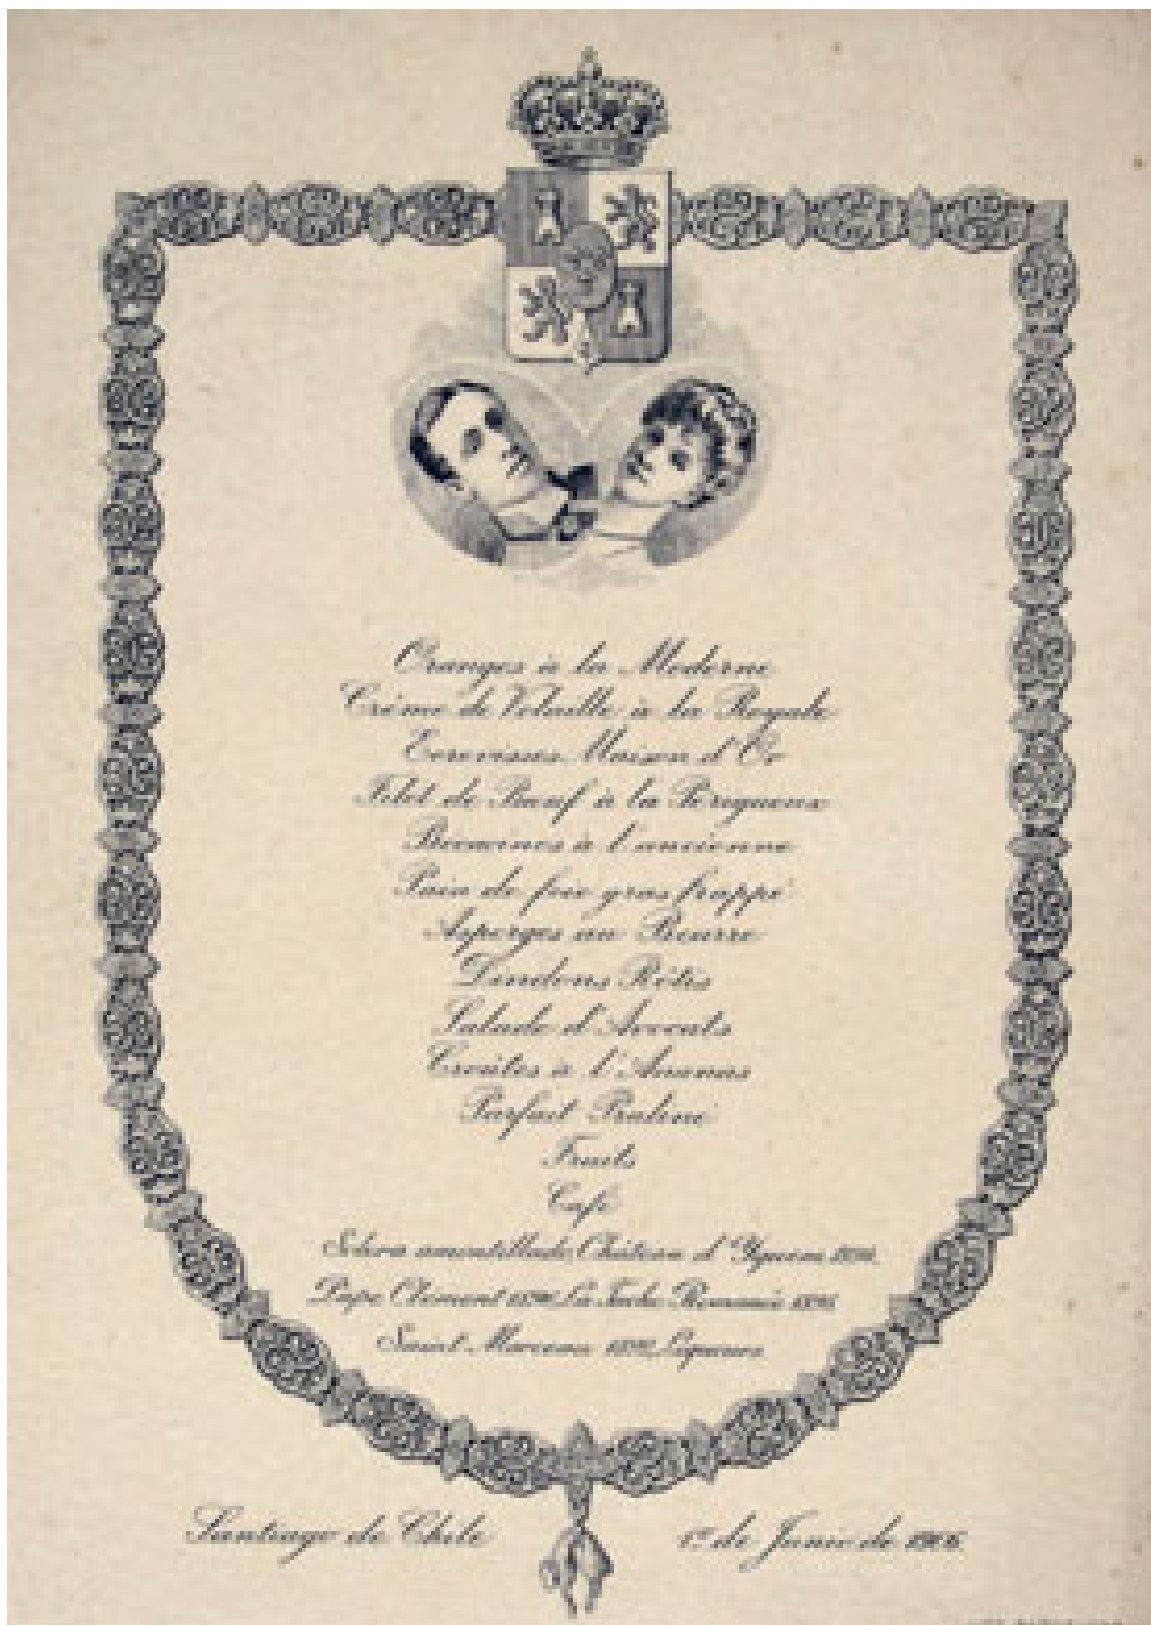 Oranges à la Moderne
Crême de Volaille à la Royale
Ecrevisses Maison d'Or
Filet de Bœuf à la Périgueux
Becacines à l'ancienne
Pain de foie gras frappé
Asperges au Beurre
Dindons Rôtis
Salade d'Avocats
Croûtes à l'Ananas
Parfait Praliné
Fruits
Café
Solera amontillado, Château d'Yquem
Pape Clément La Tache Romanée
Saint Marceaux Liqueurs
Santiago de Chile 1º de Junio de 1906